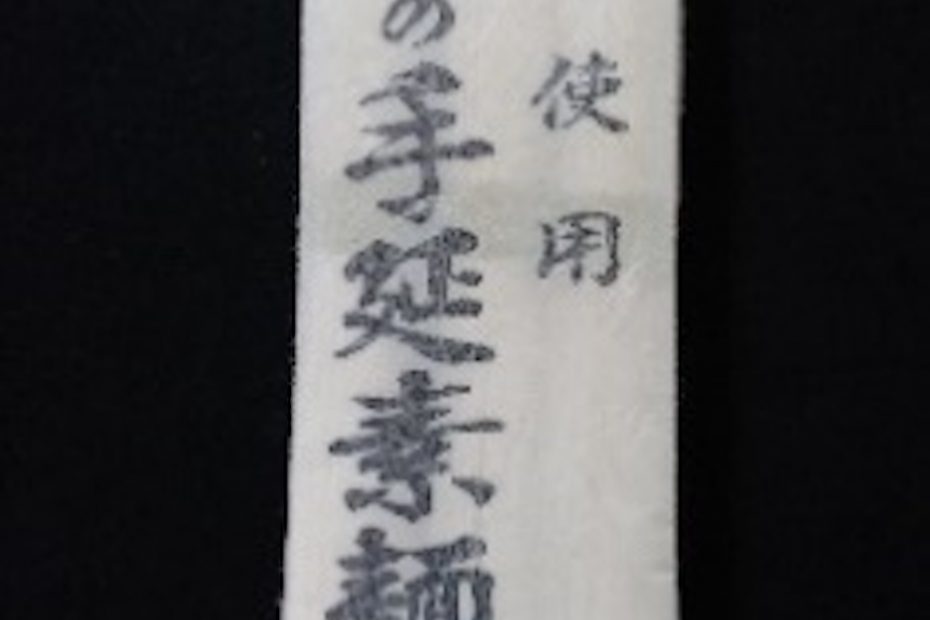 使用
の手延素麺